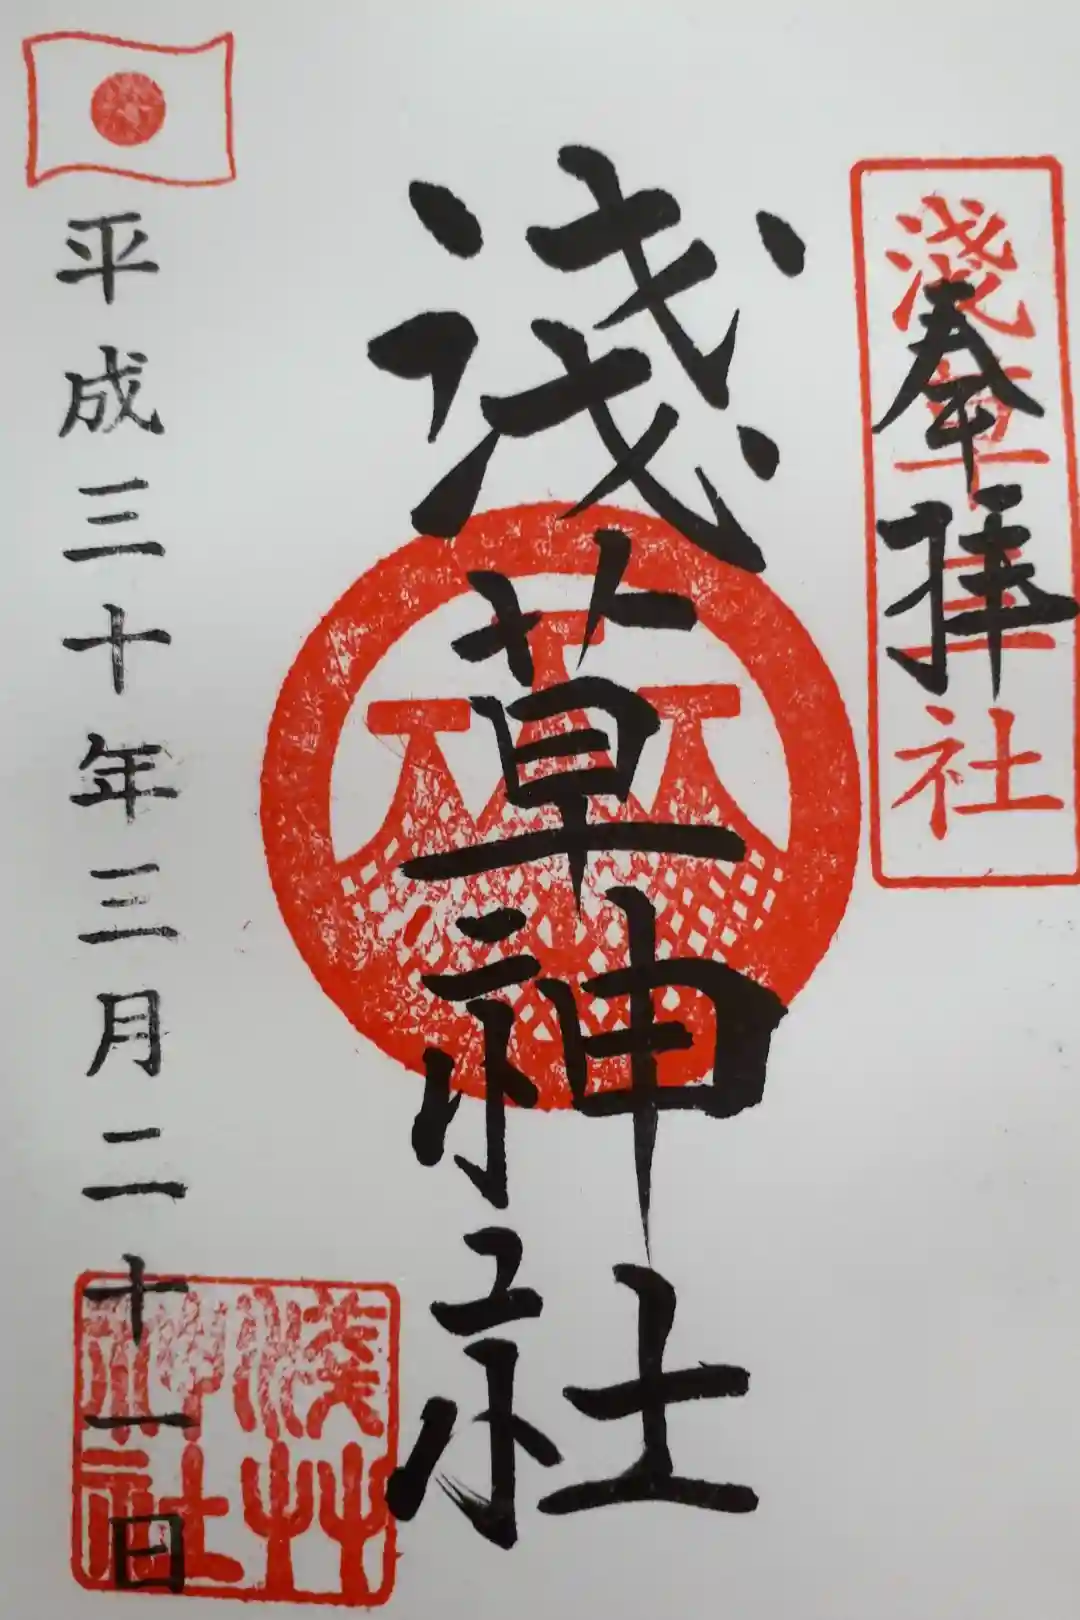 淺草三社
奉拝
淺草神社
平成三十年三月二十一日
淺艸
神社